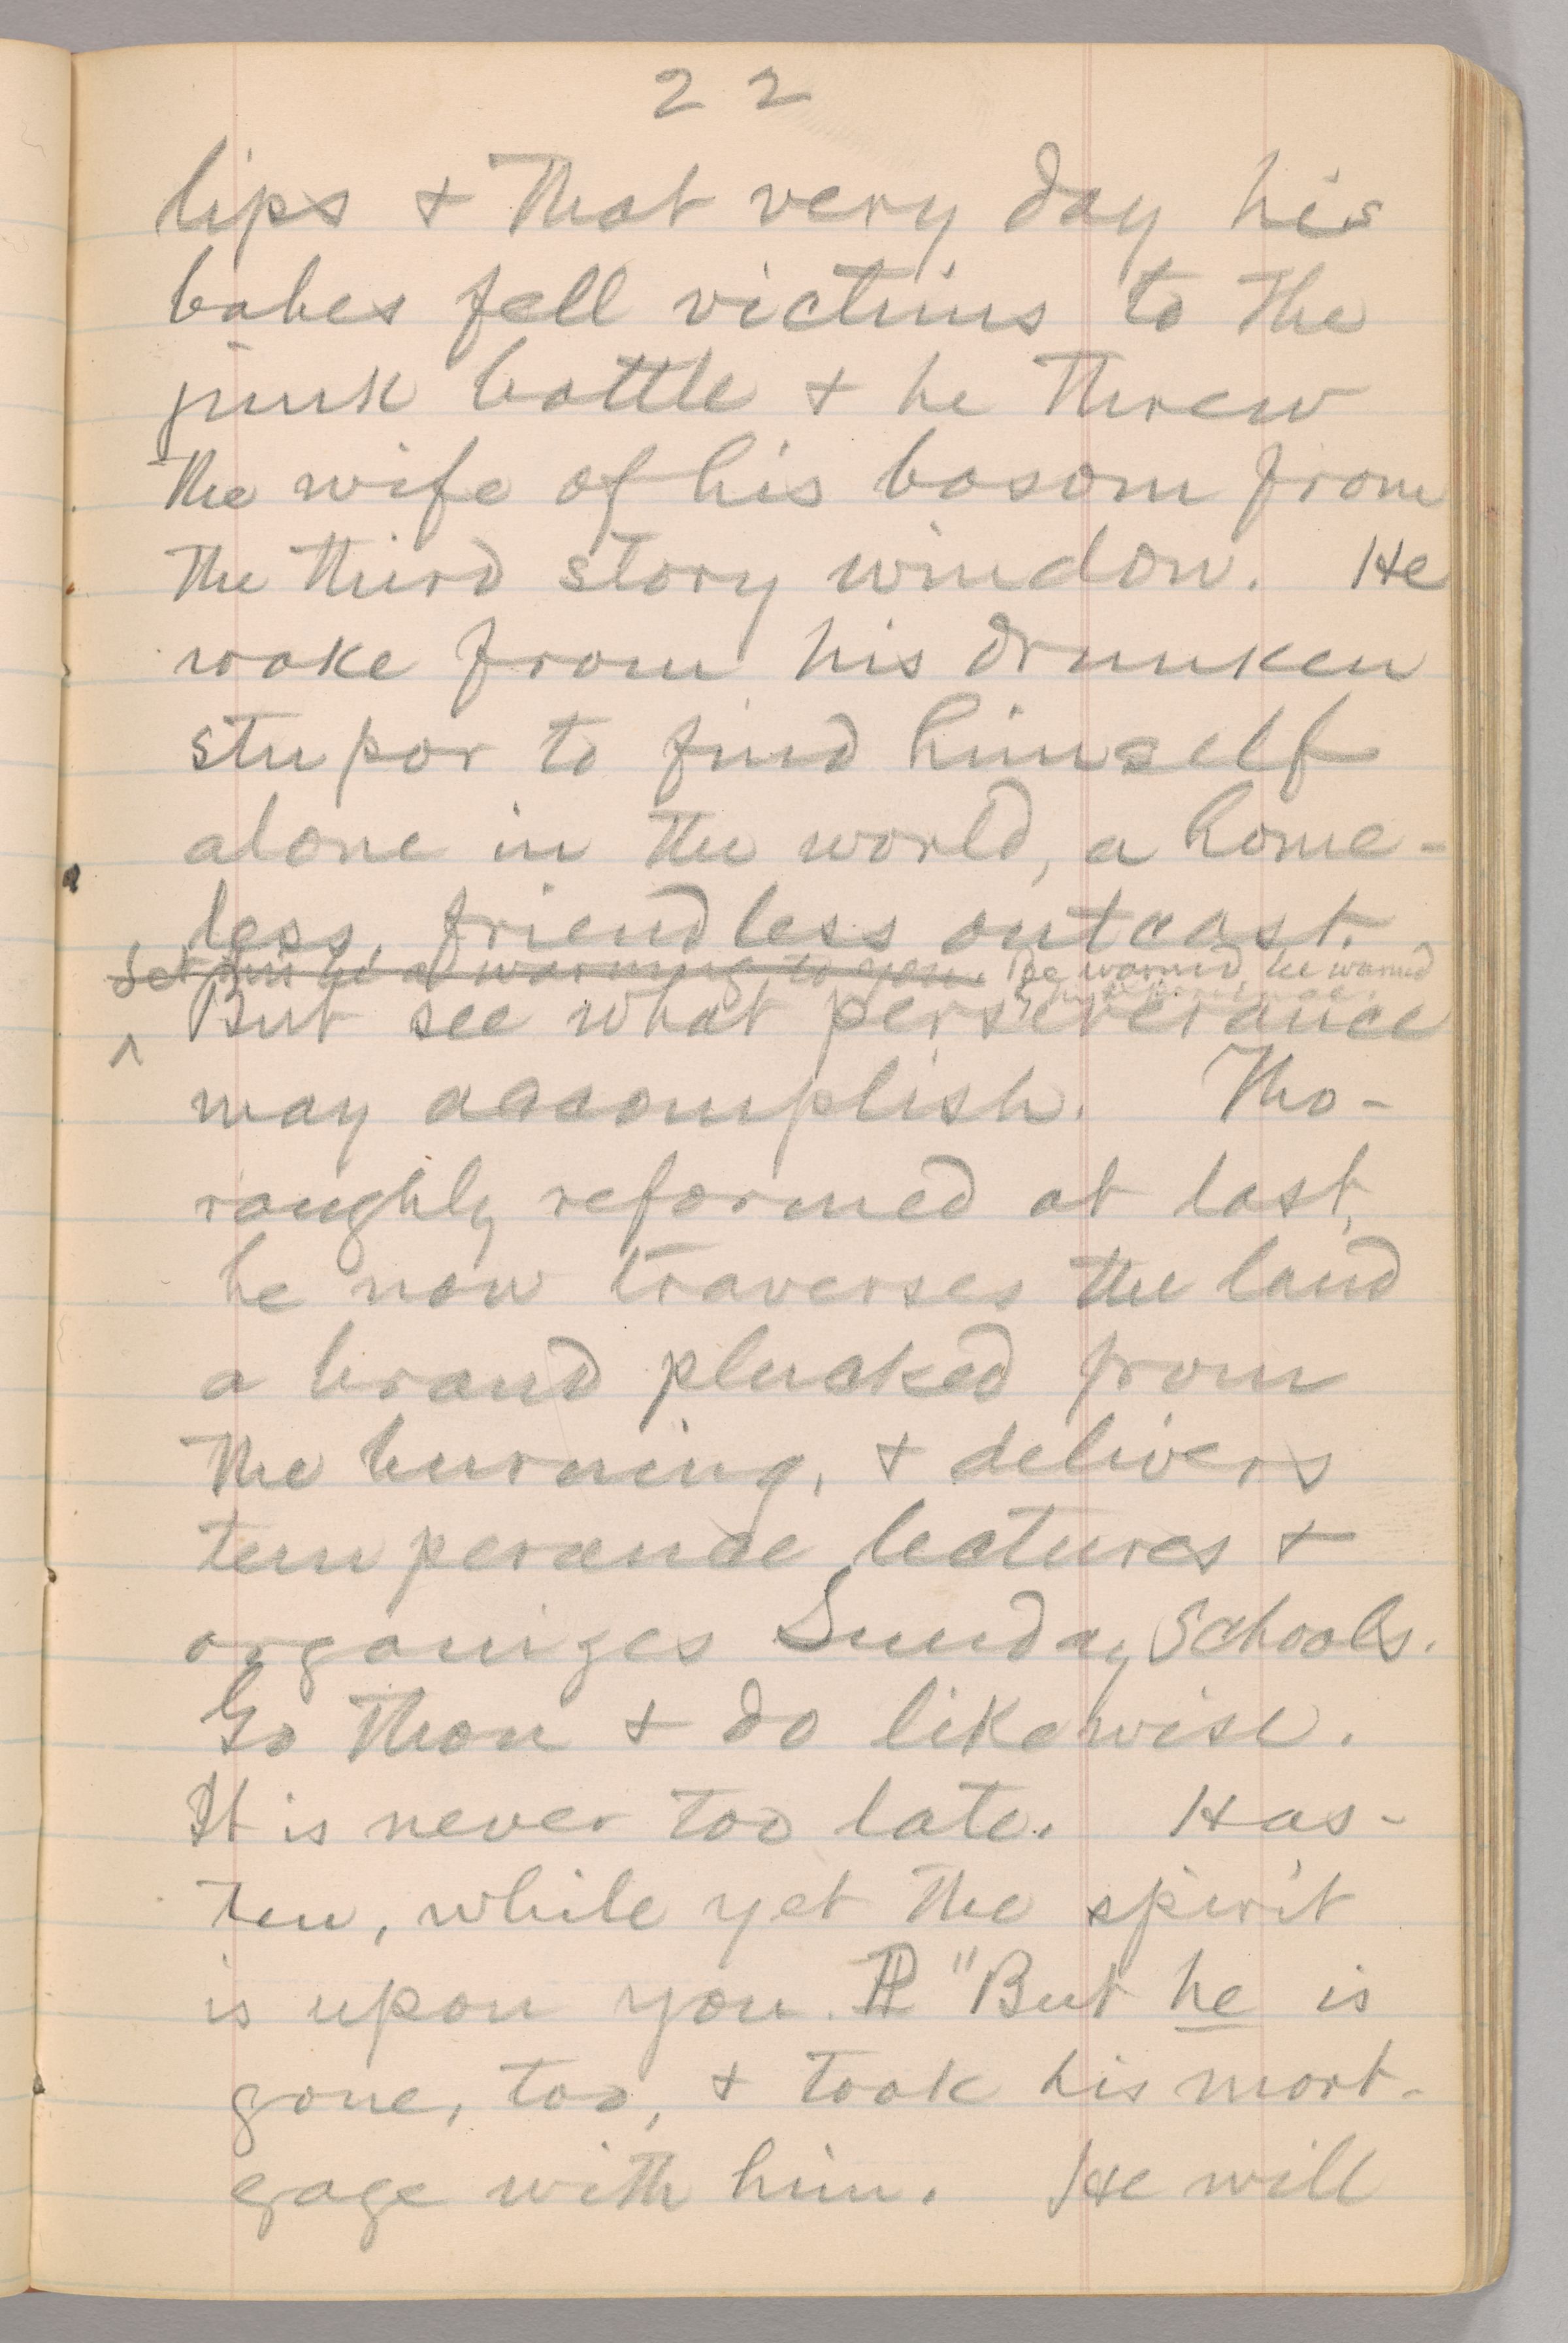 22
lips & that very day his
babes fell victims to the
junk bottle & he threw
the wife of his bosom from
the third story window. He
woke from his drunken
stupor to find himself
alone in the world, a home-
less, friendless outcast.
Let this be a warning to you. Be warned, be warned
But see what perseverance
^
may accomplish. Tho-
roughly reformed at last,
he now traverses the land
a brand plucked from
the burning, & delivers
temperance lectures &
organizes Sunday Schools.
Go thou & do likewise.
It is never too late. Has-
ten, while yet the spirit
is upon you. "But he is
gone, too, & took his mort-
gage with him. He will